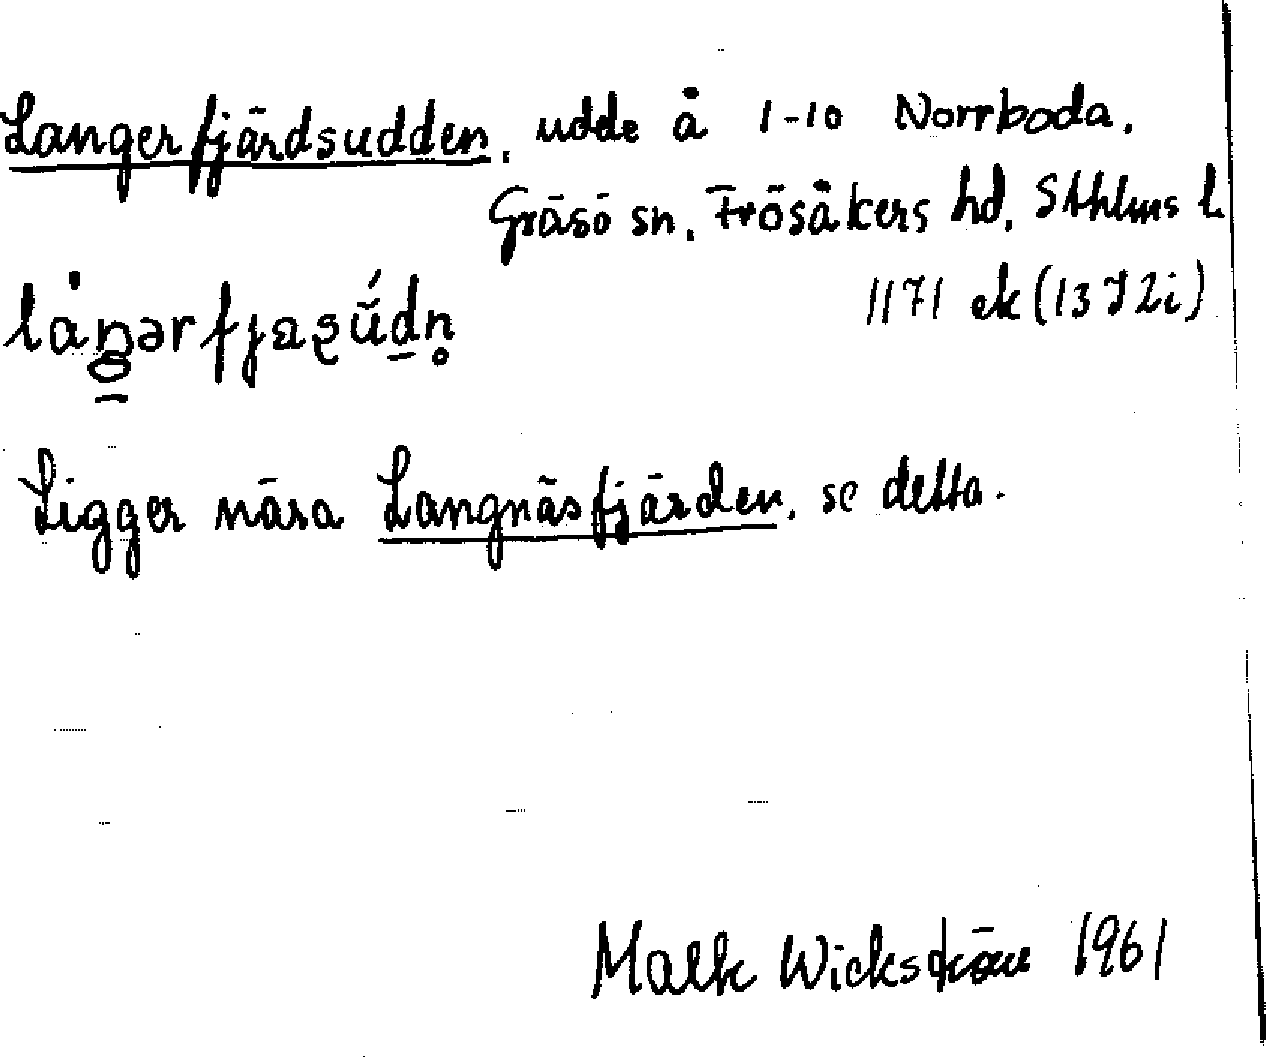 Langerfjärdsudden, udde å 1-10 Norrboda,
Gräsö sn, Frösåkers hd, Sthlms l.
1171 ek (13 I 2i)
Ligger nära Langnäsfjärden, se detta.
Wickström 1961